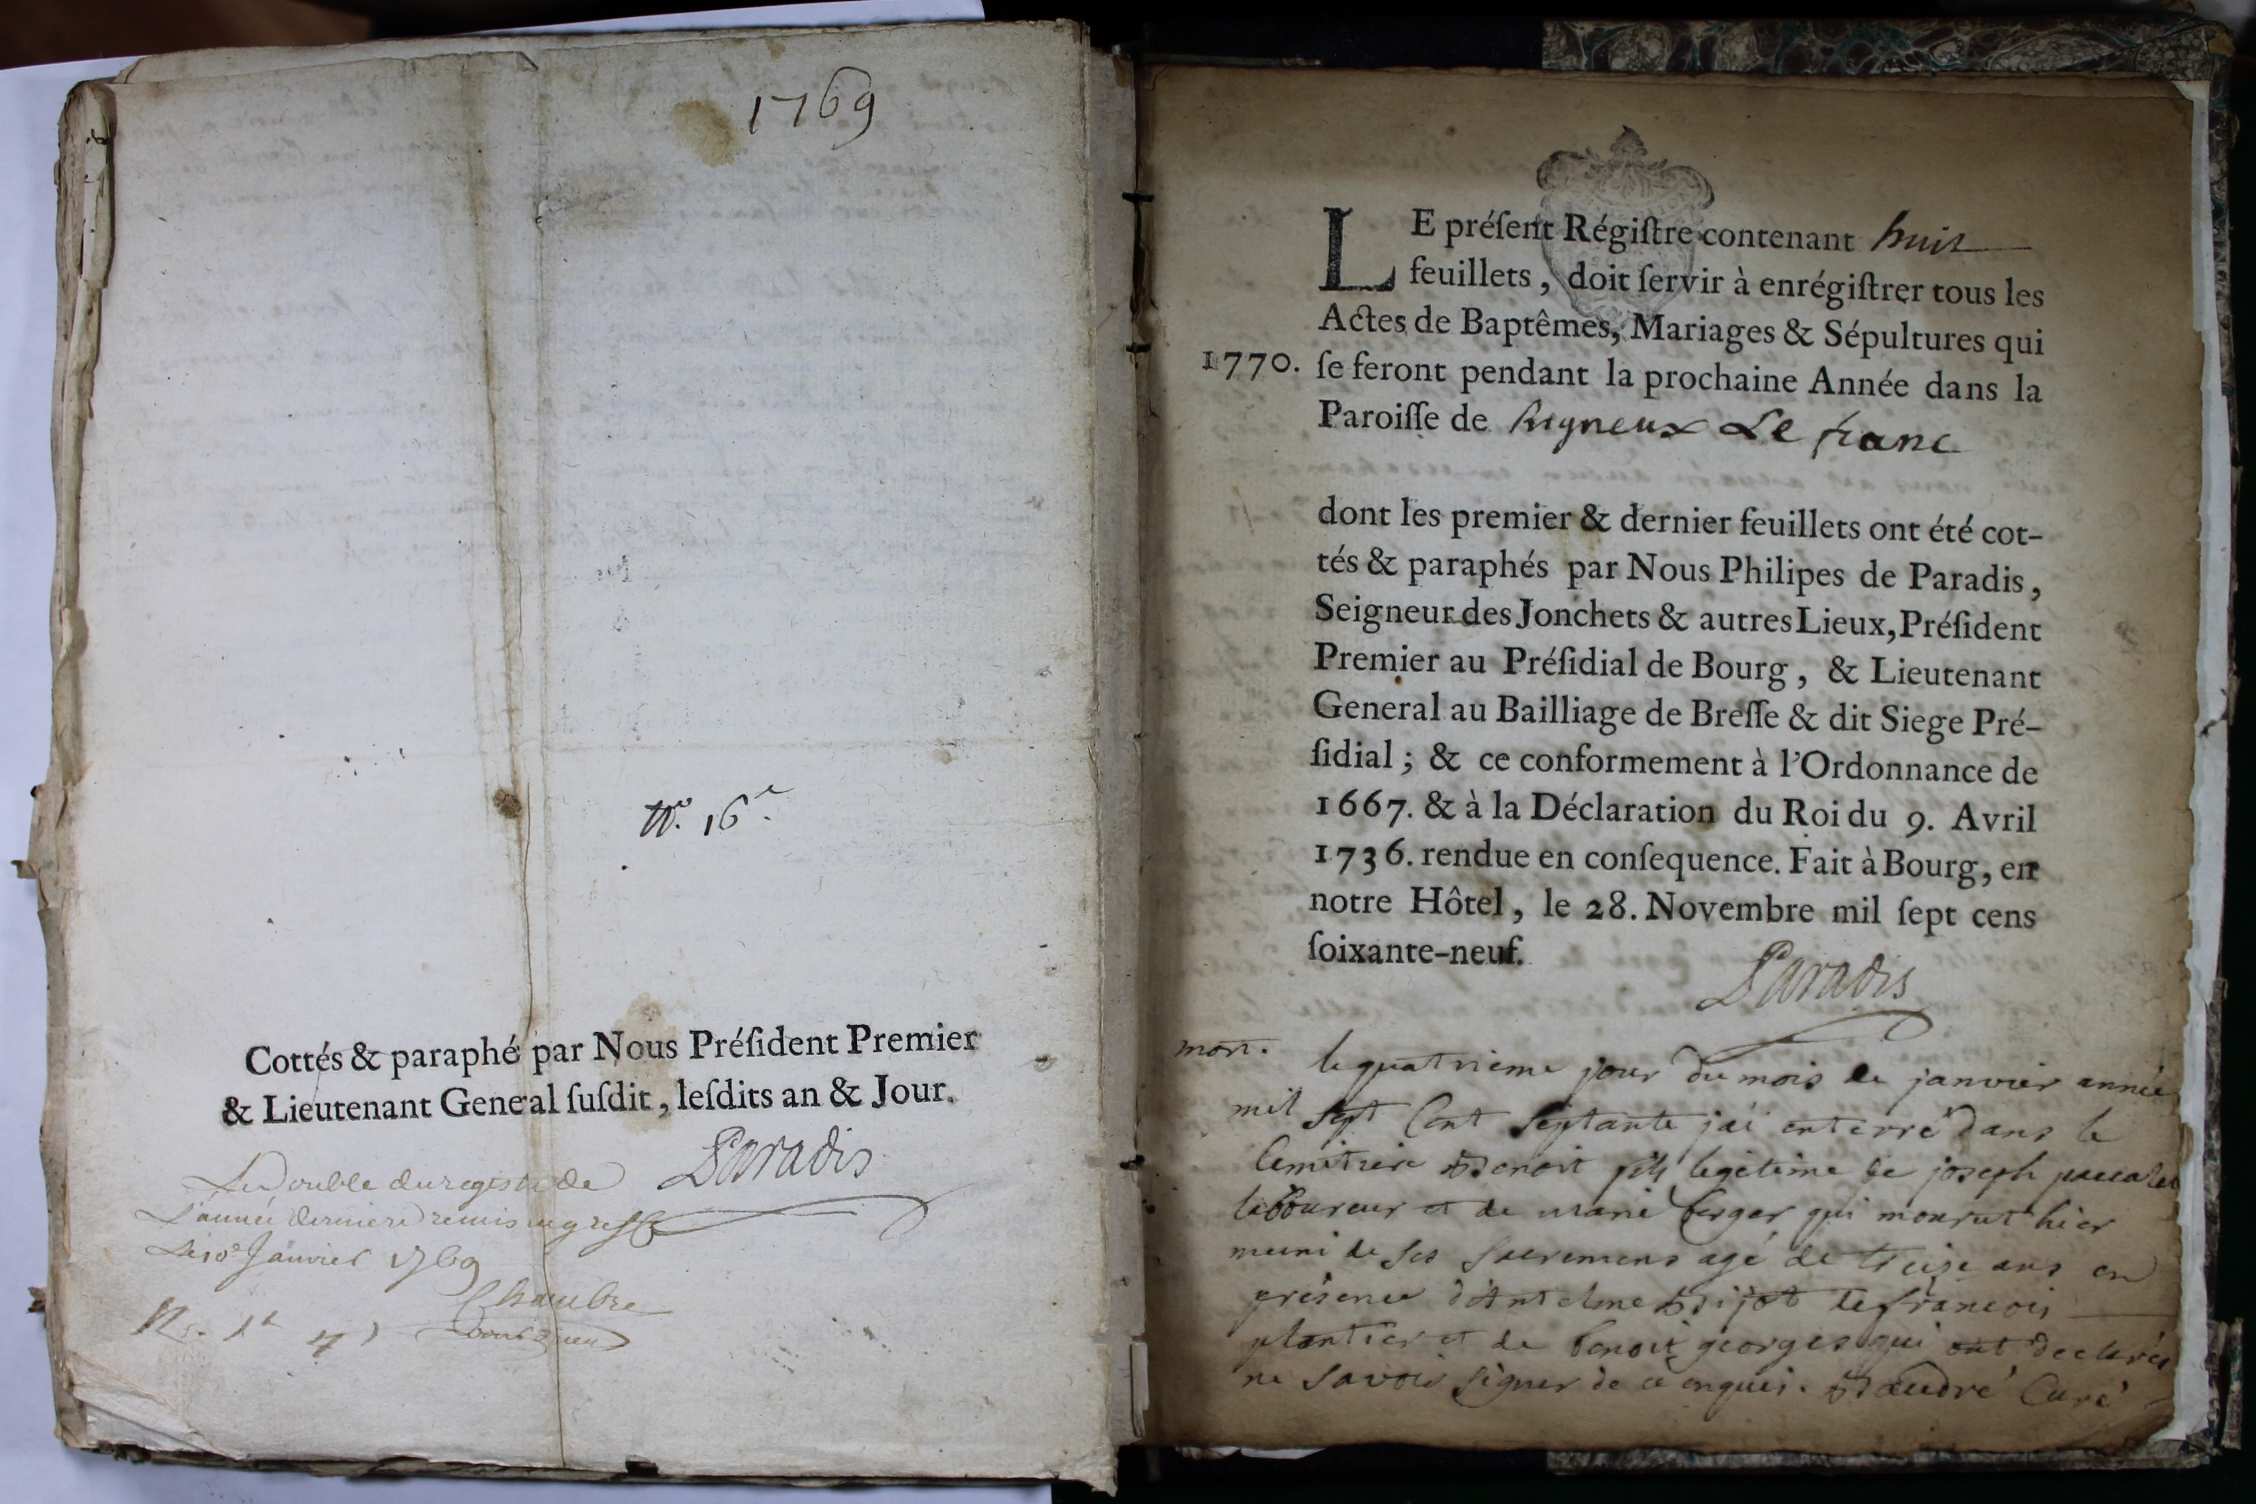 1769
No. 16e.
Cottés & paraphé par Nous Préſident Premier
& Lieutenant General ſuſdit, leſdits an & Jour.
Paradis
Le Double du registre de
L'année derniere remis au greffe
Le 10e Janvier 1769
Chambre
LE préſent Régiſtre contenant huit
feuillets, doit ſervir à enrégiſtrer tous les
Actes de Baptêmes, Mariages & Sépultures qui
1770. ſe feront pendant la prochaine Année dans la
Paroiſſe de Rigneux Le franc
dont les premier & dernier feuillets ont été cot-
tés & paraphés par Nous Philipes de Paradis,
Seigneur des Jonchets & autres Lieux, Préſident
Premier au Préſidial de Bourg, & Lieutenant
General au Bailliage de Breſſe & dit Siege Pré-
ſidial; & ce conformement à l'Ordonnance de
1667. & à la Déclaration du Roi du 9. Avril
1736. rendue en conſequence. Fait à Bourg, en
notre Hôtel, le 28. Novembre mil ſept cens
ſoixante-neuf.
Paradis
mort. le quatrieme jour du mois de janvier année
mil sept Cent septante j'ai enterré dans le
Cemitiere Benoit fils legitime de joseph
laboureur et de marie berger qui mourut hier
muni de ses sacremens agé de treize ans en
présence d'Antelme Bijot de françois
plantier et de benoit georges qui ont declarés
ne savoir signer de ce enquis. Baudré Curé